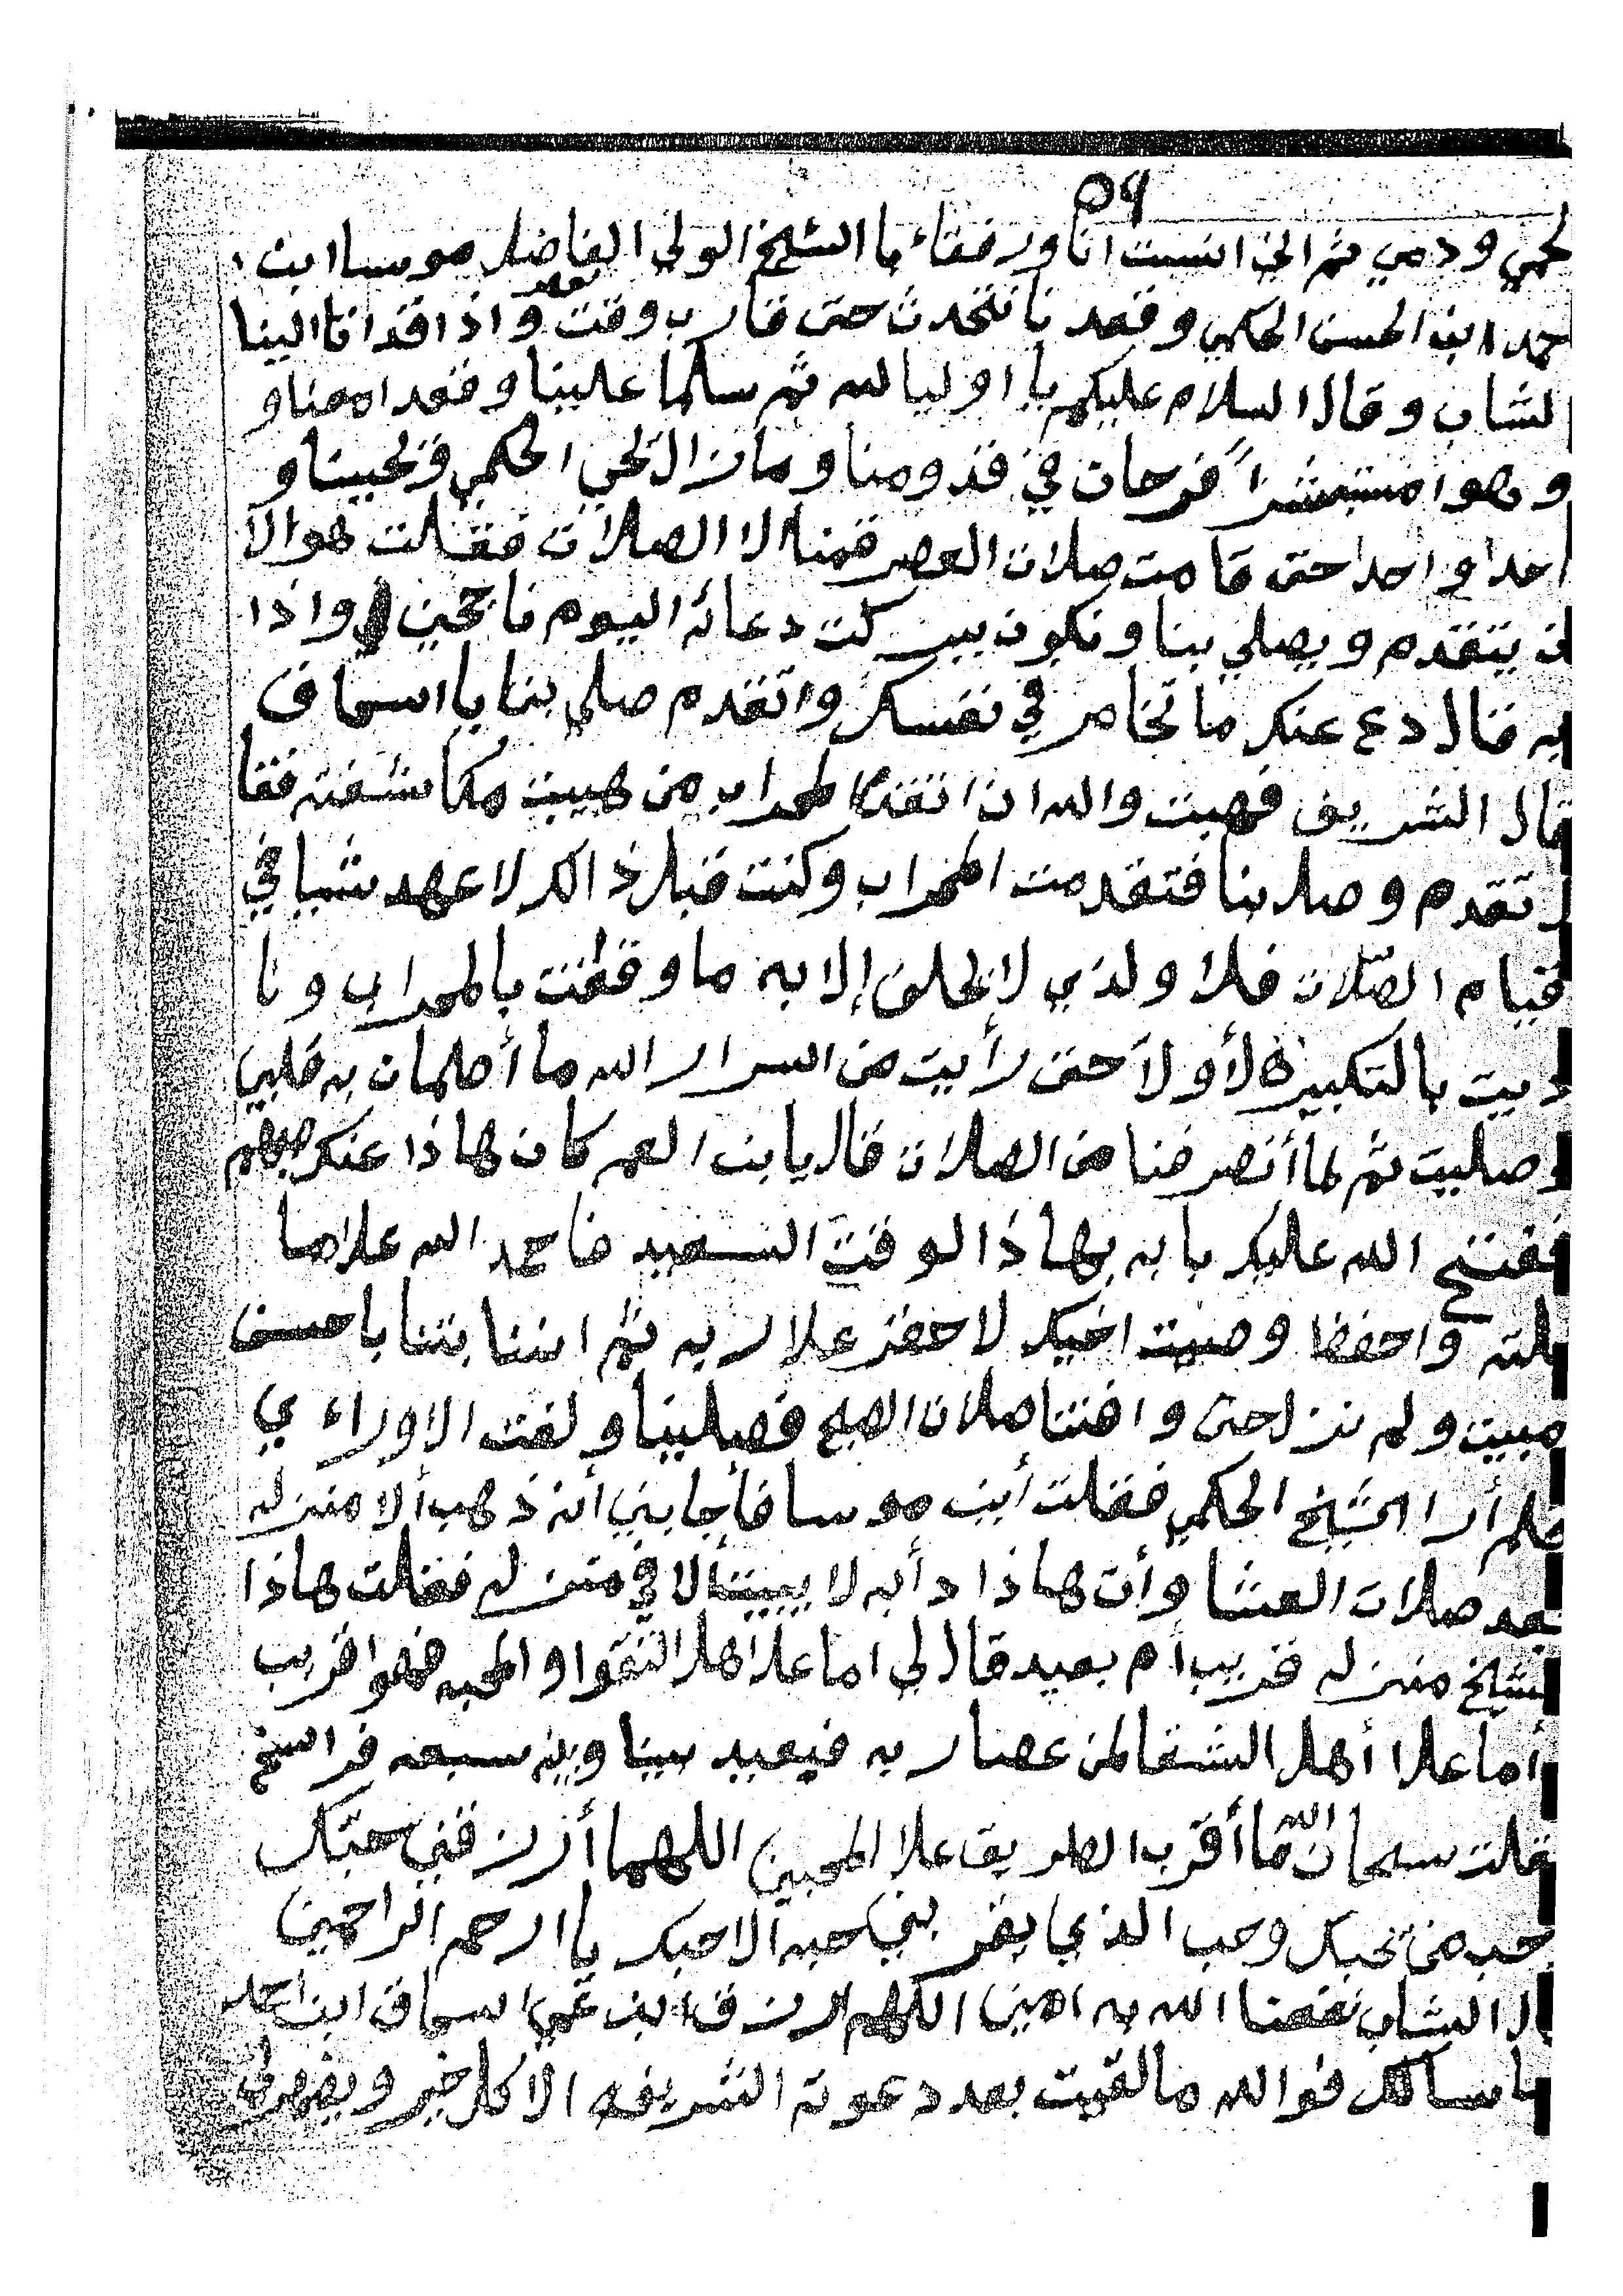 ٥٩
لحمي ودمي ثم اني انست انا ورفقاء يا الشيخ الولي الفاضل موسا ابن
حمد ابن الحسن الحكمي وقعد نا نتحدث حتى قارب وقت واذا قد اتا الينا
الشاب وقال السلام عليكم يا اوليا لله ثم سلما علينا وقعدا معنا و
وهوا مستبشراً فرحان في قدومنا ومازال لحي الحكمي في لحيينا و
احدا واحدا حتى قامت صلات العصر قمنا الا الصلات فقلت هوالا
لذ يتقدم ويصلي بنا ونكون ببركت دعائه اليوم ناجحين واذا
به قال دع عنك ما تخامر في نفسك واتقدم صلي بنا يا اسحاق
قال الشريف فهبت والله ان اتقدم المحراب من هيبت مكاشفته فقا
ل تقدم وصل بنا فتقدمت المحراب وكنت قبل ذالك لا عهد شيا في
قيام الصّلات فلا ولذي لا يحلف إلا به ما وقفت بالمحراب ونا
ديت بالتكبيرة لأولاَ حتى رأيت من اسرار الله ما أطمان به قلبي
وصليت ثم لما أنصرفنا من الصلات قال يابن العم كان هاذا عنك مبهم
ففتح الله عليك بابه بهاذا لوقت السعيد فاحمد الله علا ما
بلته واحفظ وصيت اخيك لا حفز علا ربه ثم اننا بتنا باحسن
مبيت ولم نزل حتى وافتنا صلات الصبح فصلينا ولفت الا وراء ي
فلم أرا الشيخ الحكمي فقلت أين موسا فأجابني أنه ذهب ألا منزله
بعد صلات العشا وأن هاذا دأبه لا يبيت ألا في منزله فقلت هاذا
لشيخ منزله قريب أم بعيد قال لي اما علا اهل التقوا والمحبه فهوا قريب
أما علا أهل الشقا لمن عصا ربه فبعيد بينا وبينه سبعه فراسخ
قلت سبحان اللّه ما أقرب الطريق علا المحبين اللهما أرزقني حبك
حب من يحبك وحب الذي يقربني حبه الا حبك يا ارحم الراحمين
ال الشاب نفعنا الله به امين اللهم ارزق ابن عمي اسحاق ابن احمد
ما سالك فوالله ما لقيت بعد دعوته الشريفه الا كل خير